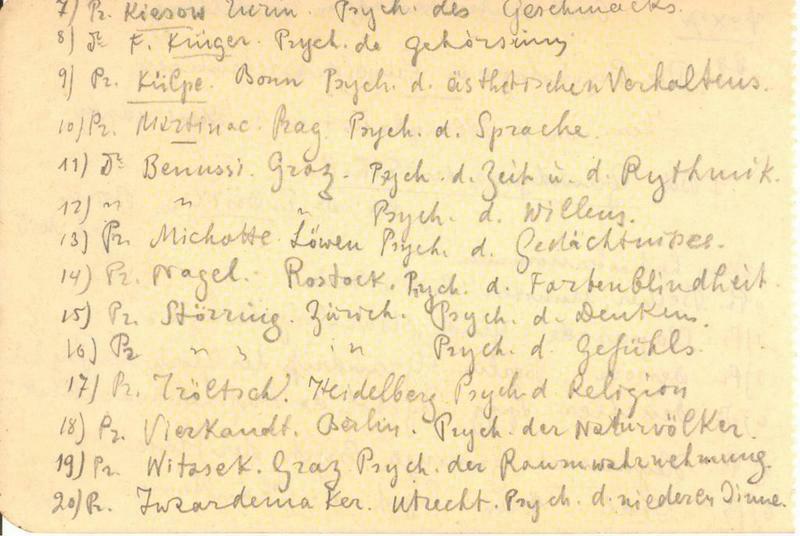 7) Pr. Kiesow Turin. Psych. des Geschmacks.
8) Dr F. Krüger. Psych. de gehörsinns
9) Pr. Külpe. Bonn Psych. d. ästhetischen Verhaltens.
10) Pr. Martinac. Prag Psych. d. Sprache.
11) Dr Benussi. Graz. Psych. d. Zeit u. d. Rythmik.
12) " " " Psych. d. Willens.
13) Pr. Michotte Löwen Psych. d. Gedächtnisses.
14) Pr. Nagel. Rostock. Psych. d. Farbenblindheit.
15) Pr. Störring. Zürich. Psych. d. Denkens.
16) Pr " " " Psych. d. Gefühls.
17) Pr. Tröltsch. Heidelberg Psych d Religion
18) Pr. Vierkandt. Berlin. Psych. der Naturvölker.
19) Pr. Witasek. Graz Psych. der Raumwahrnehmung.
20) Pr. Zwaardemaker. Utrecht. Psych. d. niederen Sinne.